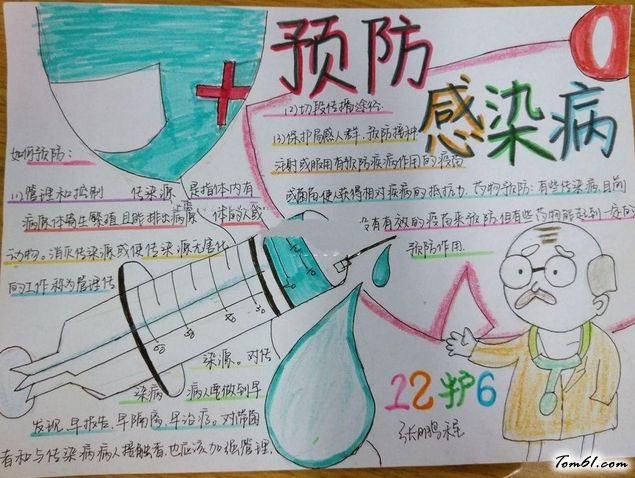 预防
感染病
如何预防：
(1)管理和控制 传染源 是指体内有
病原体寄生繁殖且能排出病原 体的人或
动物。消灭传染源或使传染源无害化
的工作称为管理传
染源。对传
染病 病人要做到早
发现,早报告,早隔离,早治疗。对带菌
者和与传染病病人接触者,也应该加强管理.
(2)切段传播途径.
(3)保护局感人群.预防接种
注射或服用有预防疾病作用的疫苗
或菌苗使人获得相对疾病的抵抗力.药物预防:有些传染病,目前
没有有效的疫苗来预防但有些药物能起到一定的
预防作用.
12护6
张鹏
Tom61.com